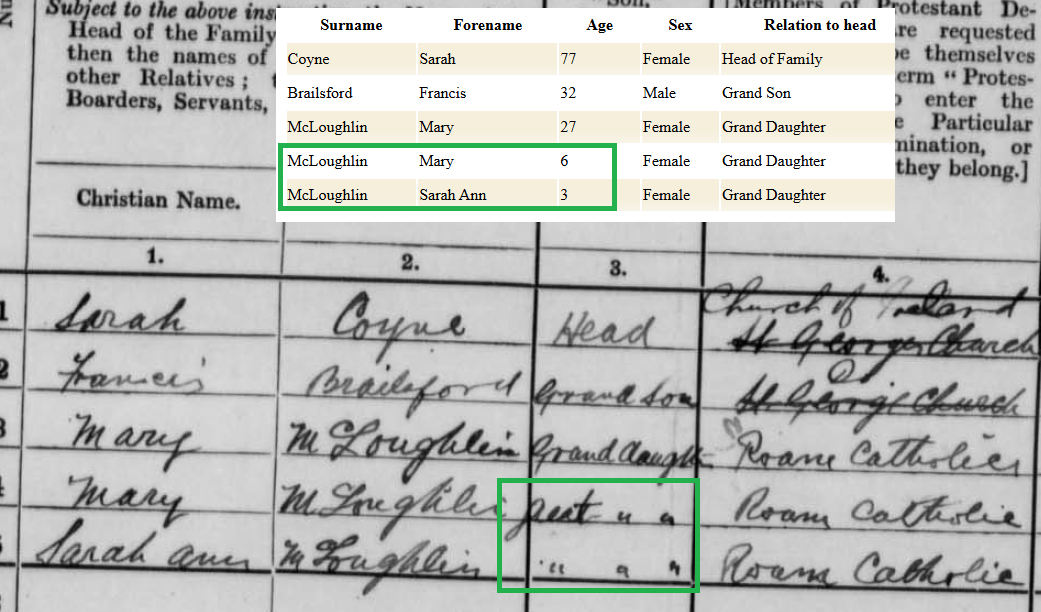 Subject to the above
Head of the Family
then the names of
other Relatives;
Boarders, Servants,
Members of Protestant De-
are requested
themselves
term "Protes-
enter the
Particular
mination, or
they belong.]
Surname Forename Age Sex Relation to head
Coyne Sarah 77 Female Head of Family
Brailsford Francis 32 Male Grand Son
McLoughlin Mary 27 Female Grand Daughter
McLoughlin Mary 6 Female Grand Daughter
McLoughlin Sarah Ann 3 Female Grand Daughter
Christian Name.
1. 2. 3. 4.
Church of Ireland
1 Sarah Coyne Head St Georges Church
2 Francis Brailsford Grand Son St George Church
3 Mary McLoughlin Grand daught Roam Catholic
4 Mary McLoughlin great " " Roam Catholic
5 Sarah ann McLoughlin " " " Roam Catholic